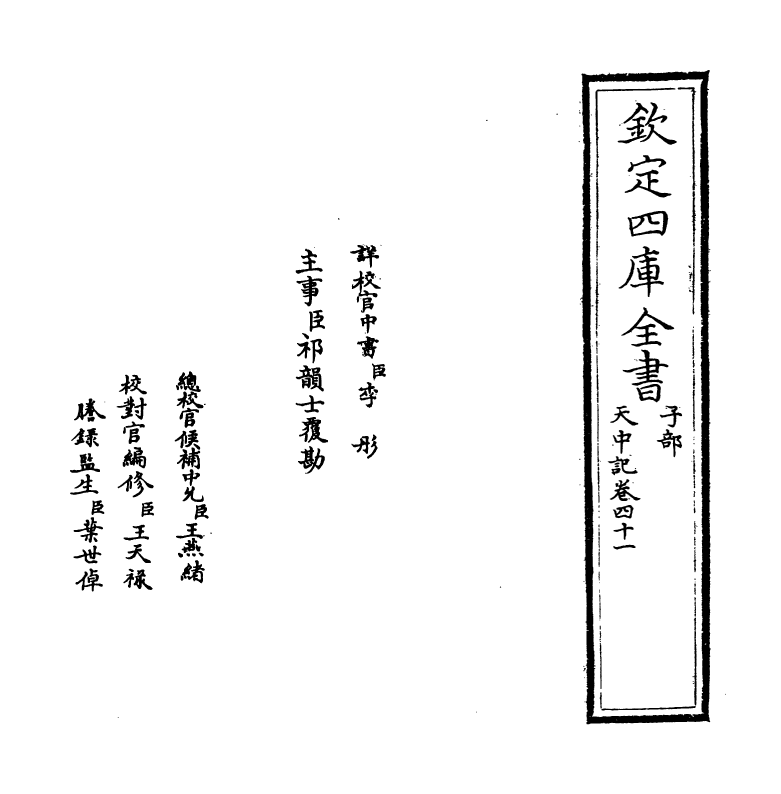 欽定四庫全書
子部
天中記卷四十一
詳校官中書臣李彤
主事臣祁韻士覆勘
總校官候補中允臣王燕緒
校對官編修臣王天祿
謄錄監生臣葉世倬